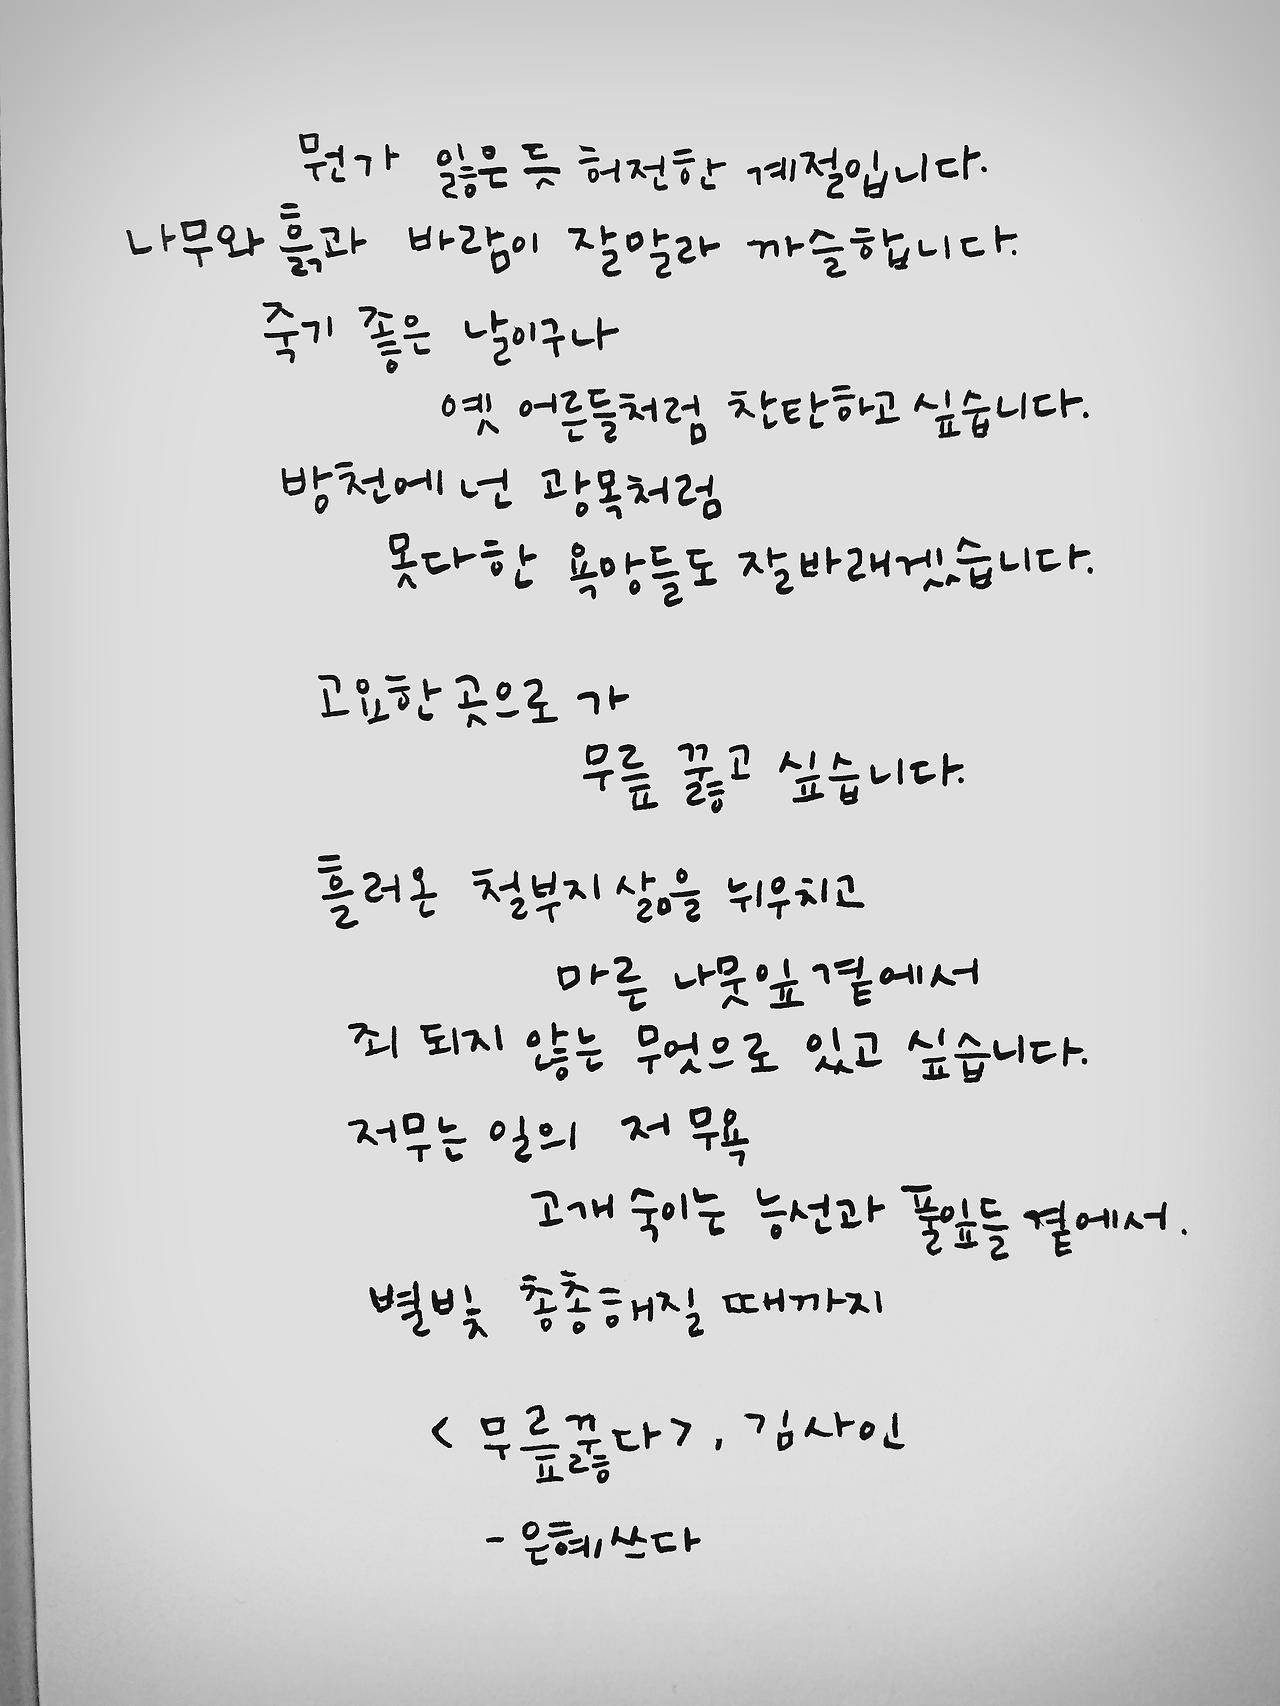 뭔가 잃은 듯 허전한 계절입니다.
나무와 흙과 바람이 잘말라 까슬합니다.
죽기 좋은 날이구나
옛 어른들처럼 찬탄하고 싶습니다.
방천에 넌 광목처럼
못다한 욕망들도 잘바래겠습니다.
고요한 곳으로 가
무릎 꿇고 싶습니다.
흘러온 철부지 삶을 뉘우치고
마른 나뭇잎 곁에서
죄 되지 않는 무엇으로 있고 싶습니다.
저무는 일의 저 무욕
고개 숙이는 능선과 풀잎들 곁에서.
별빛 총총해질 때까지
<무릎꿇다>, 김사인
- 은혜쓰다